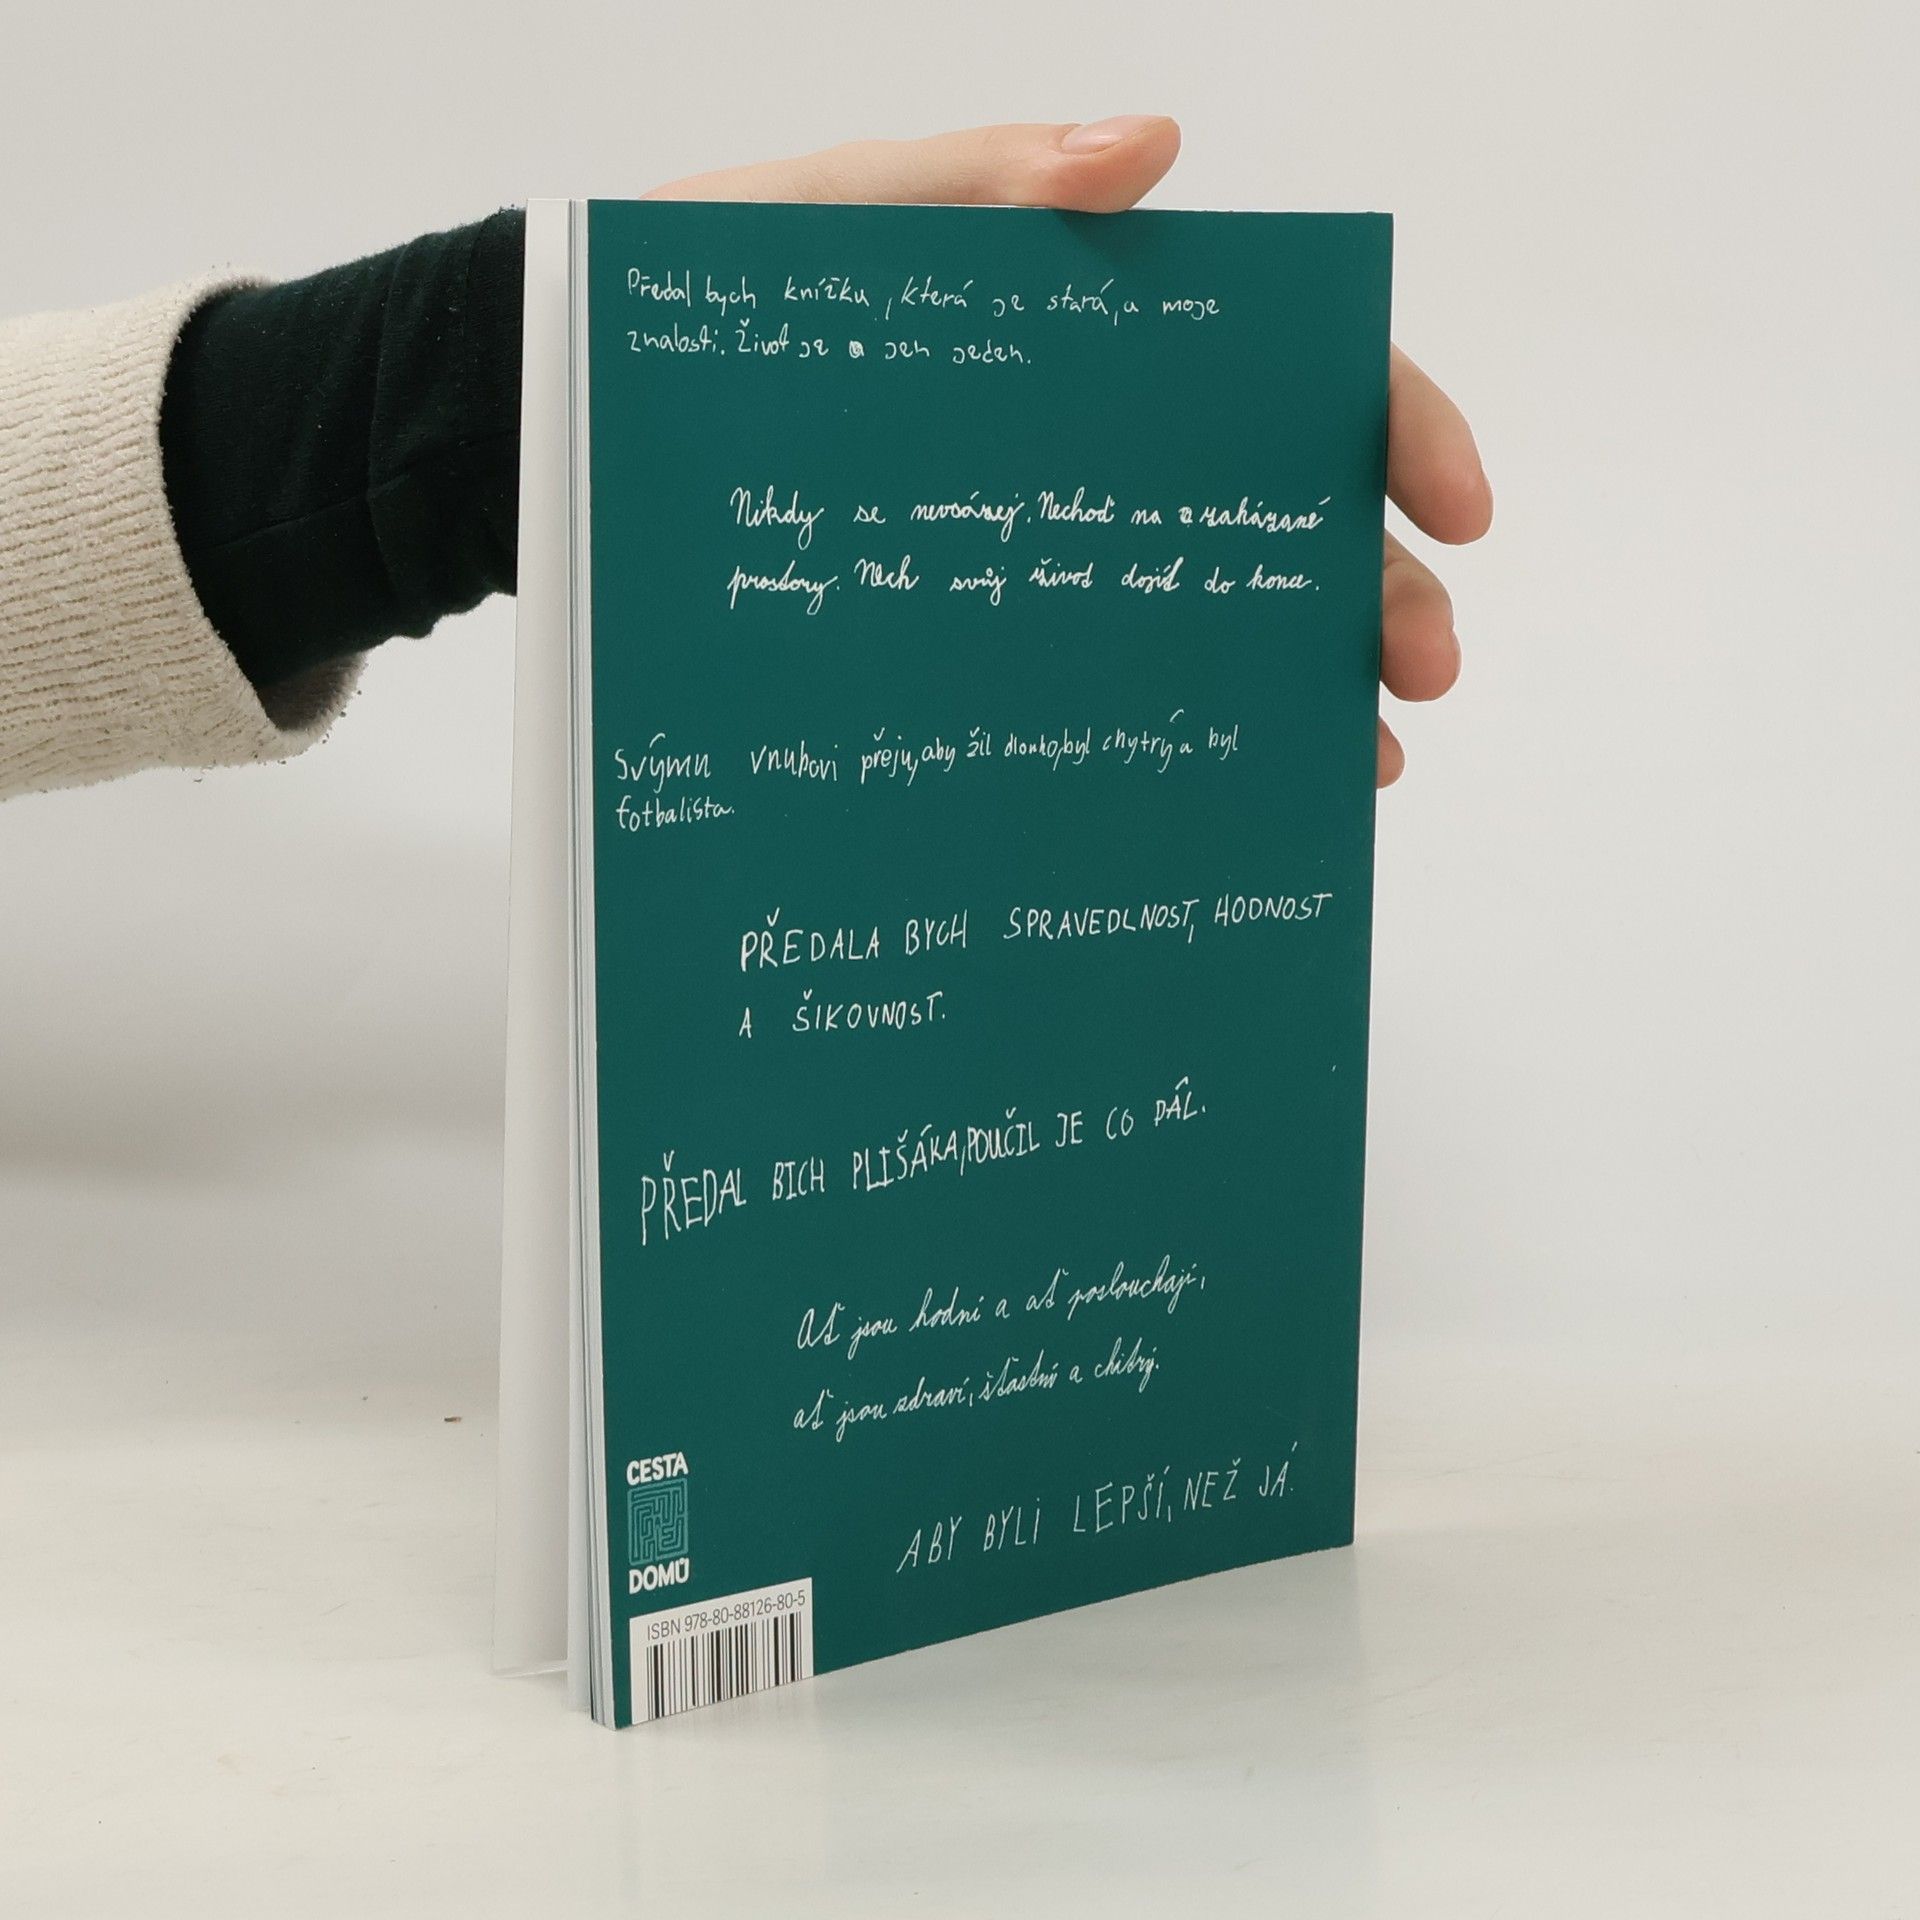 Předal bych knížku, která je stará, a moje
znalosti. Život je jen jeden.
Nikdy se nevsázej. Nechoď na zakázané
prostory. Nech svůj život dojít do konce.
Svýmu vnukovi přeju, aby žil dlouho, byl chytrý a byl
fotbalista.
PŘEDALA BYCH SPRAVEDLNOST, HODNOST
A ŠIKOVNOST.
PŘEDAL BICH PLIŠÁKA, POUČIL JE CO DÁL.
Ať jsou hodní a ať poslouchají,
ať jsou zdraví, šťastní a chitrý.
ABY BYLI LEPŠÍ, NEŽ JÁ.
CESTA
DOMŮ
ISBN 978-80-88126-80-5